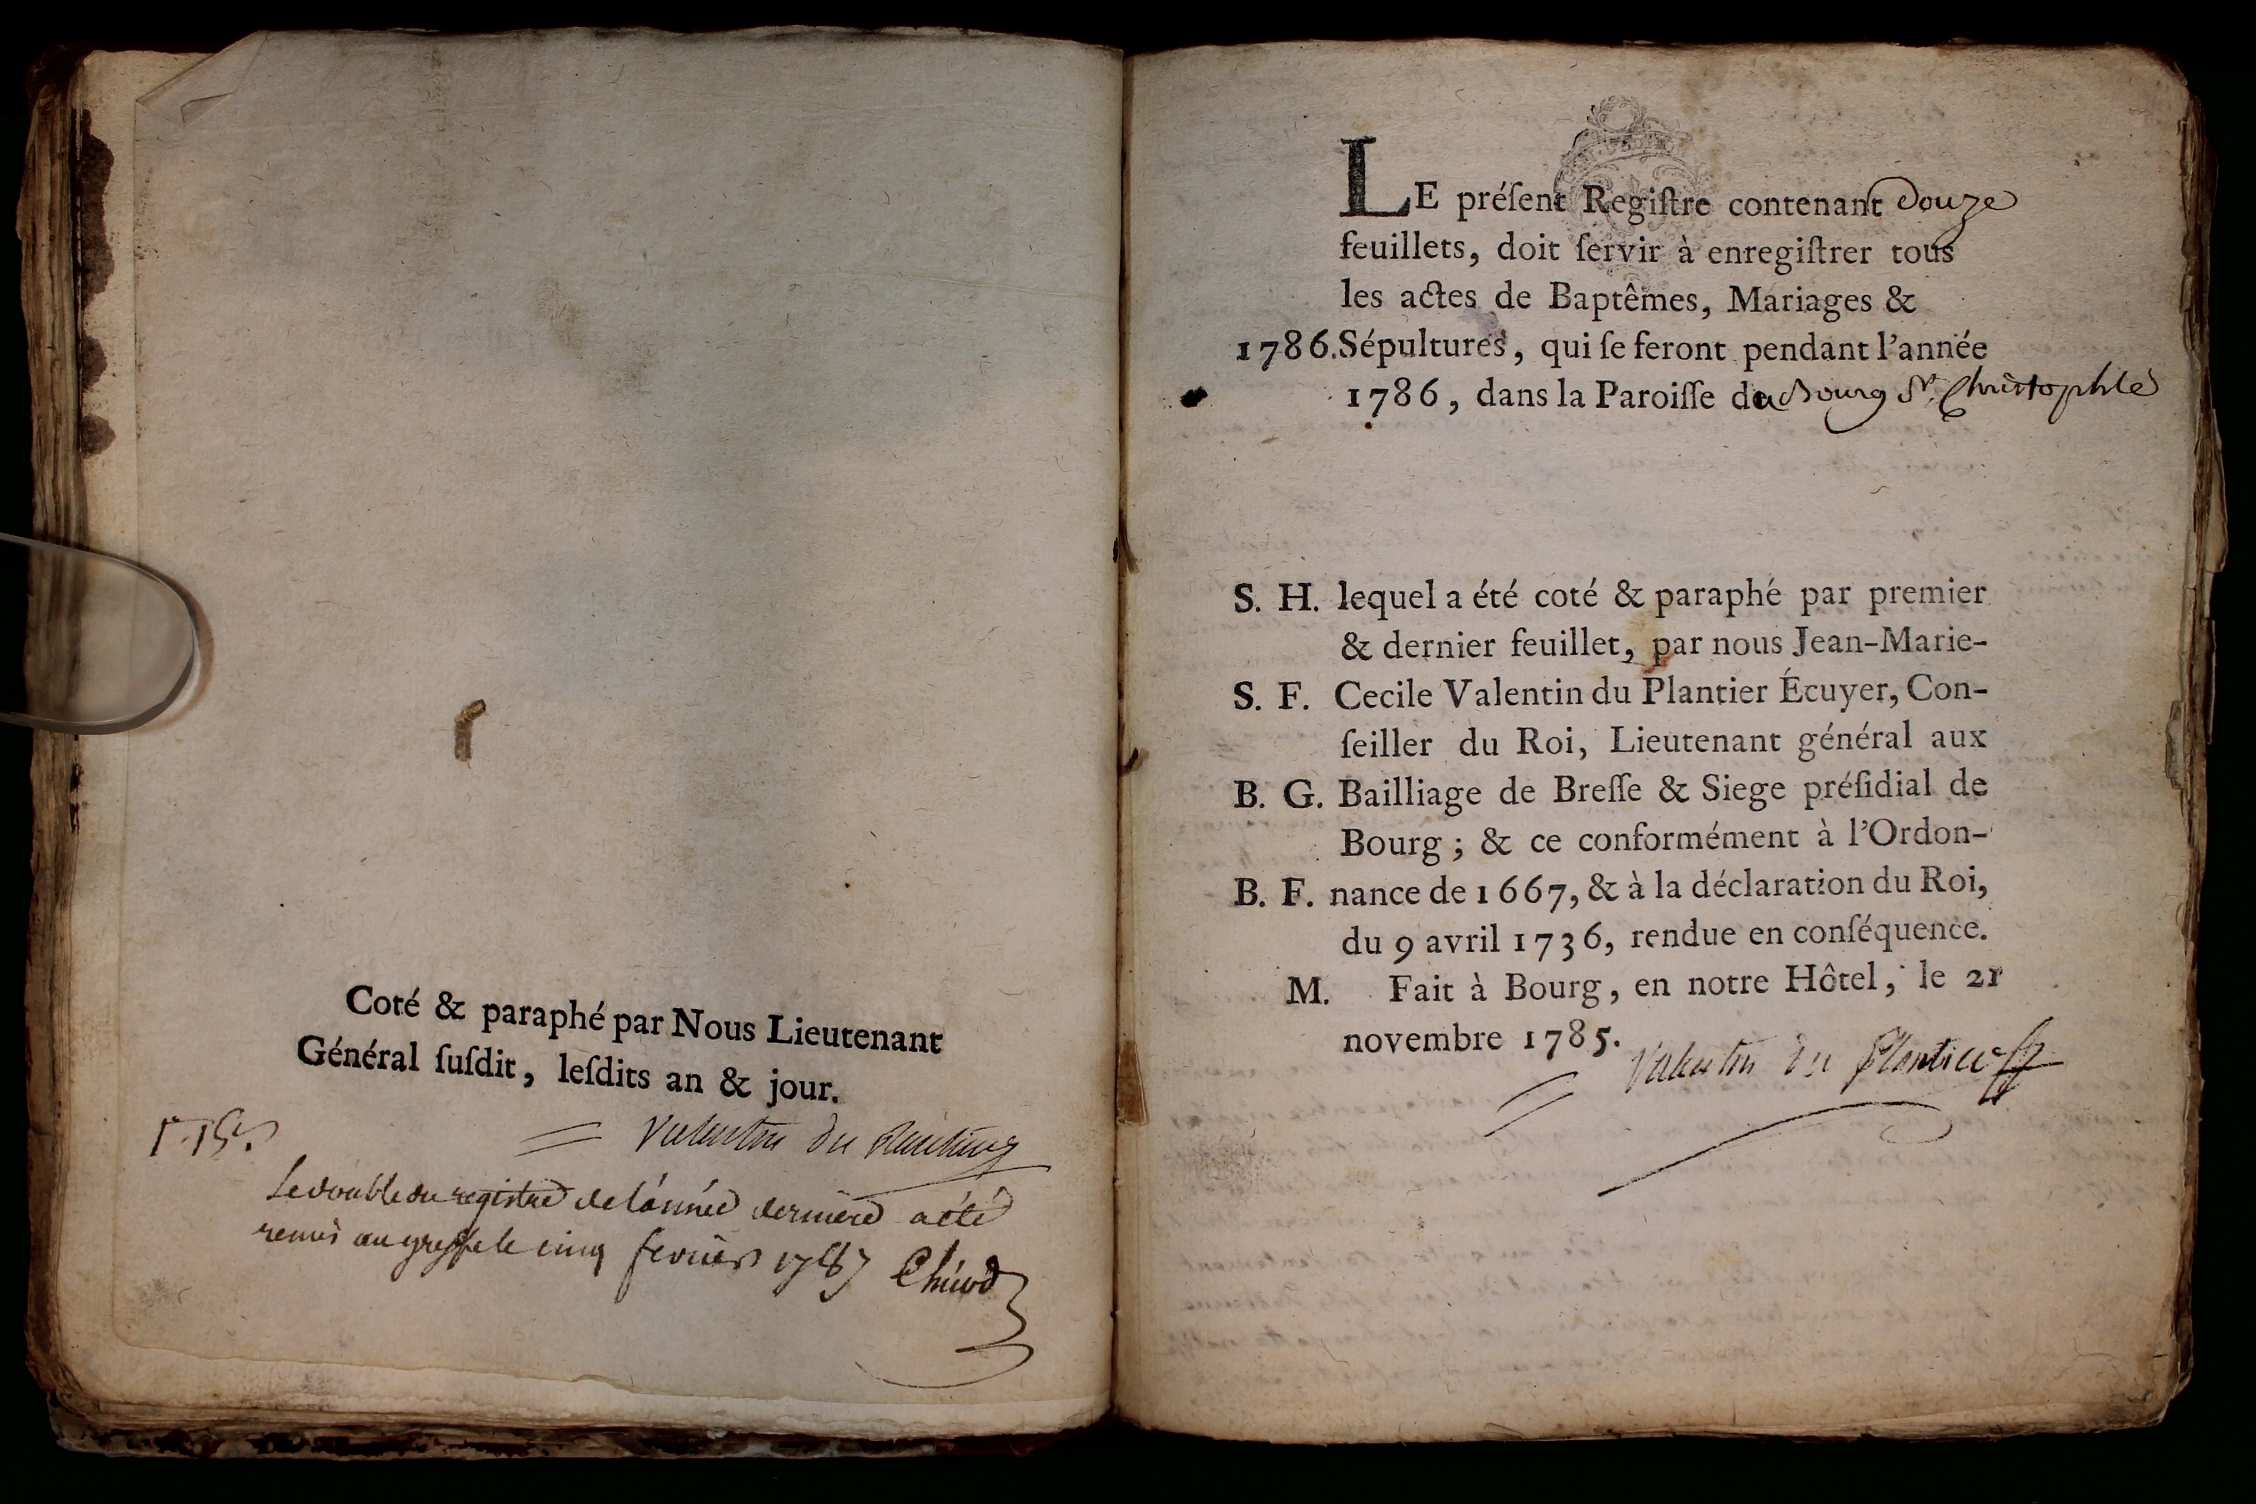 Coté & paraphé par Nous Lieutenant
Général ſuſdit, leſdits an & jour.
Valentin du Plantier
Le double du registre de l'année derniere a été
remis au greffe le cinq fevrier 1787
LE préſent Regiſtre contenant douze
feuillets, doit ſervir à enregiſtrer tous
les actes de Baptêmes, Mariages &
1786. Sépultures, qui ſe feront pendant l'année
1786, dans la Paroiſſe du Bourg St. Christophle
S. H. lequel a été coté & paraphé par premier
& dernier feuillet, par nous Jean-Marie-
S. F. Cecile Valentin du Plantier Écuyer, Con-
ſeiller du Roi, Lieutenant général aux
B. G. Bailliage de Breſſe & Siege préſidial de
Bourg ; & ce conformément à l'Ordon-
B. F. nance de 1667, & à la déclaration du Roi,
du 9 avril 1736, rendue en conſéquence.
M. Fait à Bourg, en notre Hôtel, le 21
novembre 1785.
Valentin du Plantier